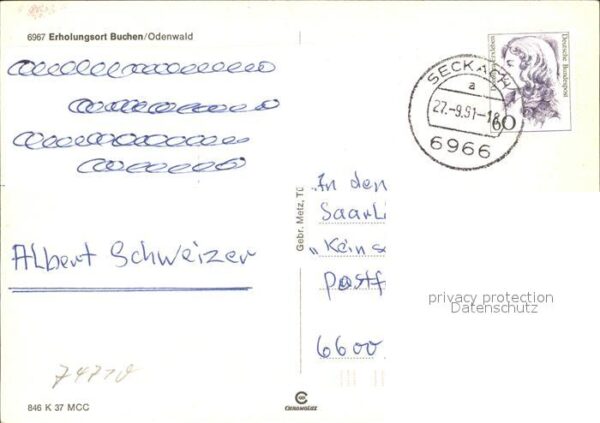 6967 Erholungsort Buchen/Odenwald
Dorothea Erxleben
Deutsche Bundespost
60
SECKACH
a
27.-9.91-18
6966
Albert Schweizer
Gebr. Metz, Tü
In den
SaarLi
"Kein
Postf
6600
privacy protection
Datenschutz
846 K 37 MCC
CHROMOLUX